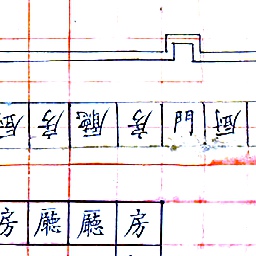 房 廳 房 門
房 廳 廳 房